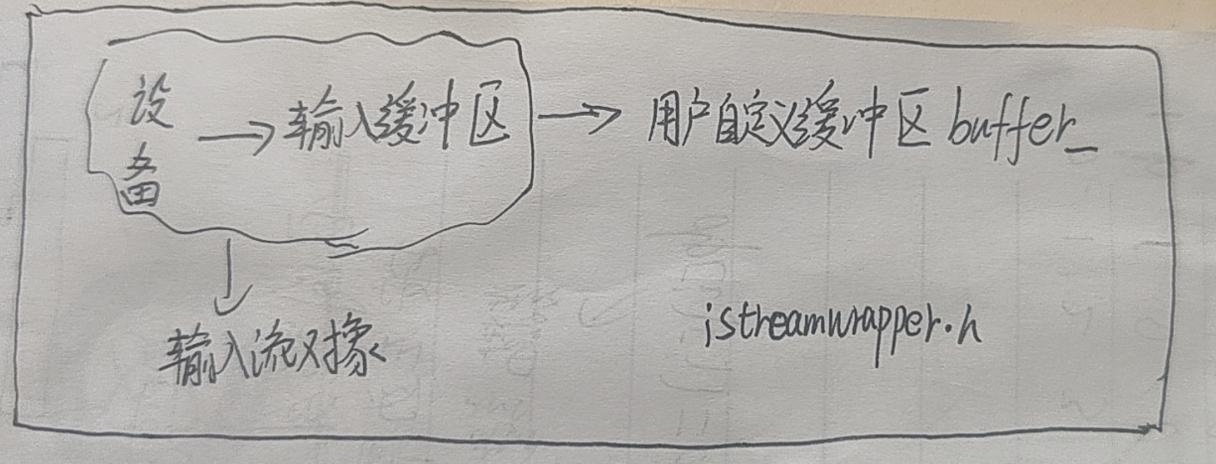 设备
输入缓冲区
用户自定义缓冲区 buffer_
输入流对象
istreamwrapper.h